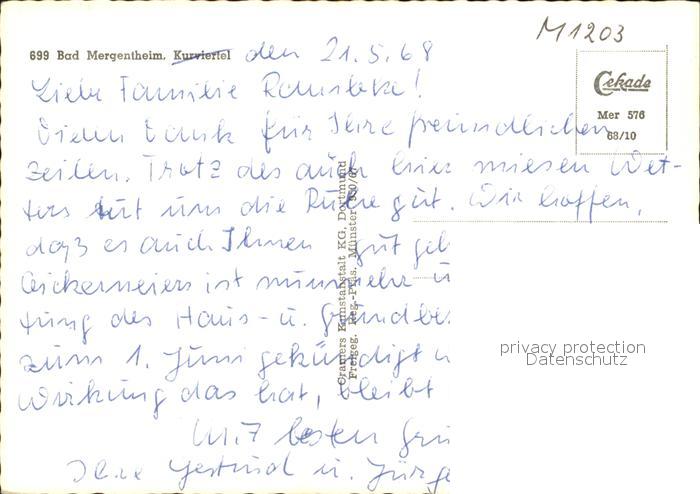 M1203
699 Bad Mergentheim, Kurviertel den 21.5.68
Cekade
Mer 576
68/10
Liebe Familie
Vielen Dank für Ihre freundlichen
Zeilen. Trotz des auch hier miesen Wet-
ters tut uns die Ruhe gut. Wir hoffen,
daß es auch Ihnen gut geh
ist nunmehr
tung des Haus- u. Grundbe
zum 1. Juni gekündigt
Wirkung das hat, bleibt
Mit besten Grü
Ihre Gertrud u. Jürge
Cramers Kunstanstalt KG, Dortmund
Freigeg. Reg.-Präs. Münster
privacy protection
Datenschutz